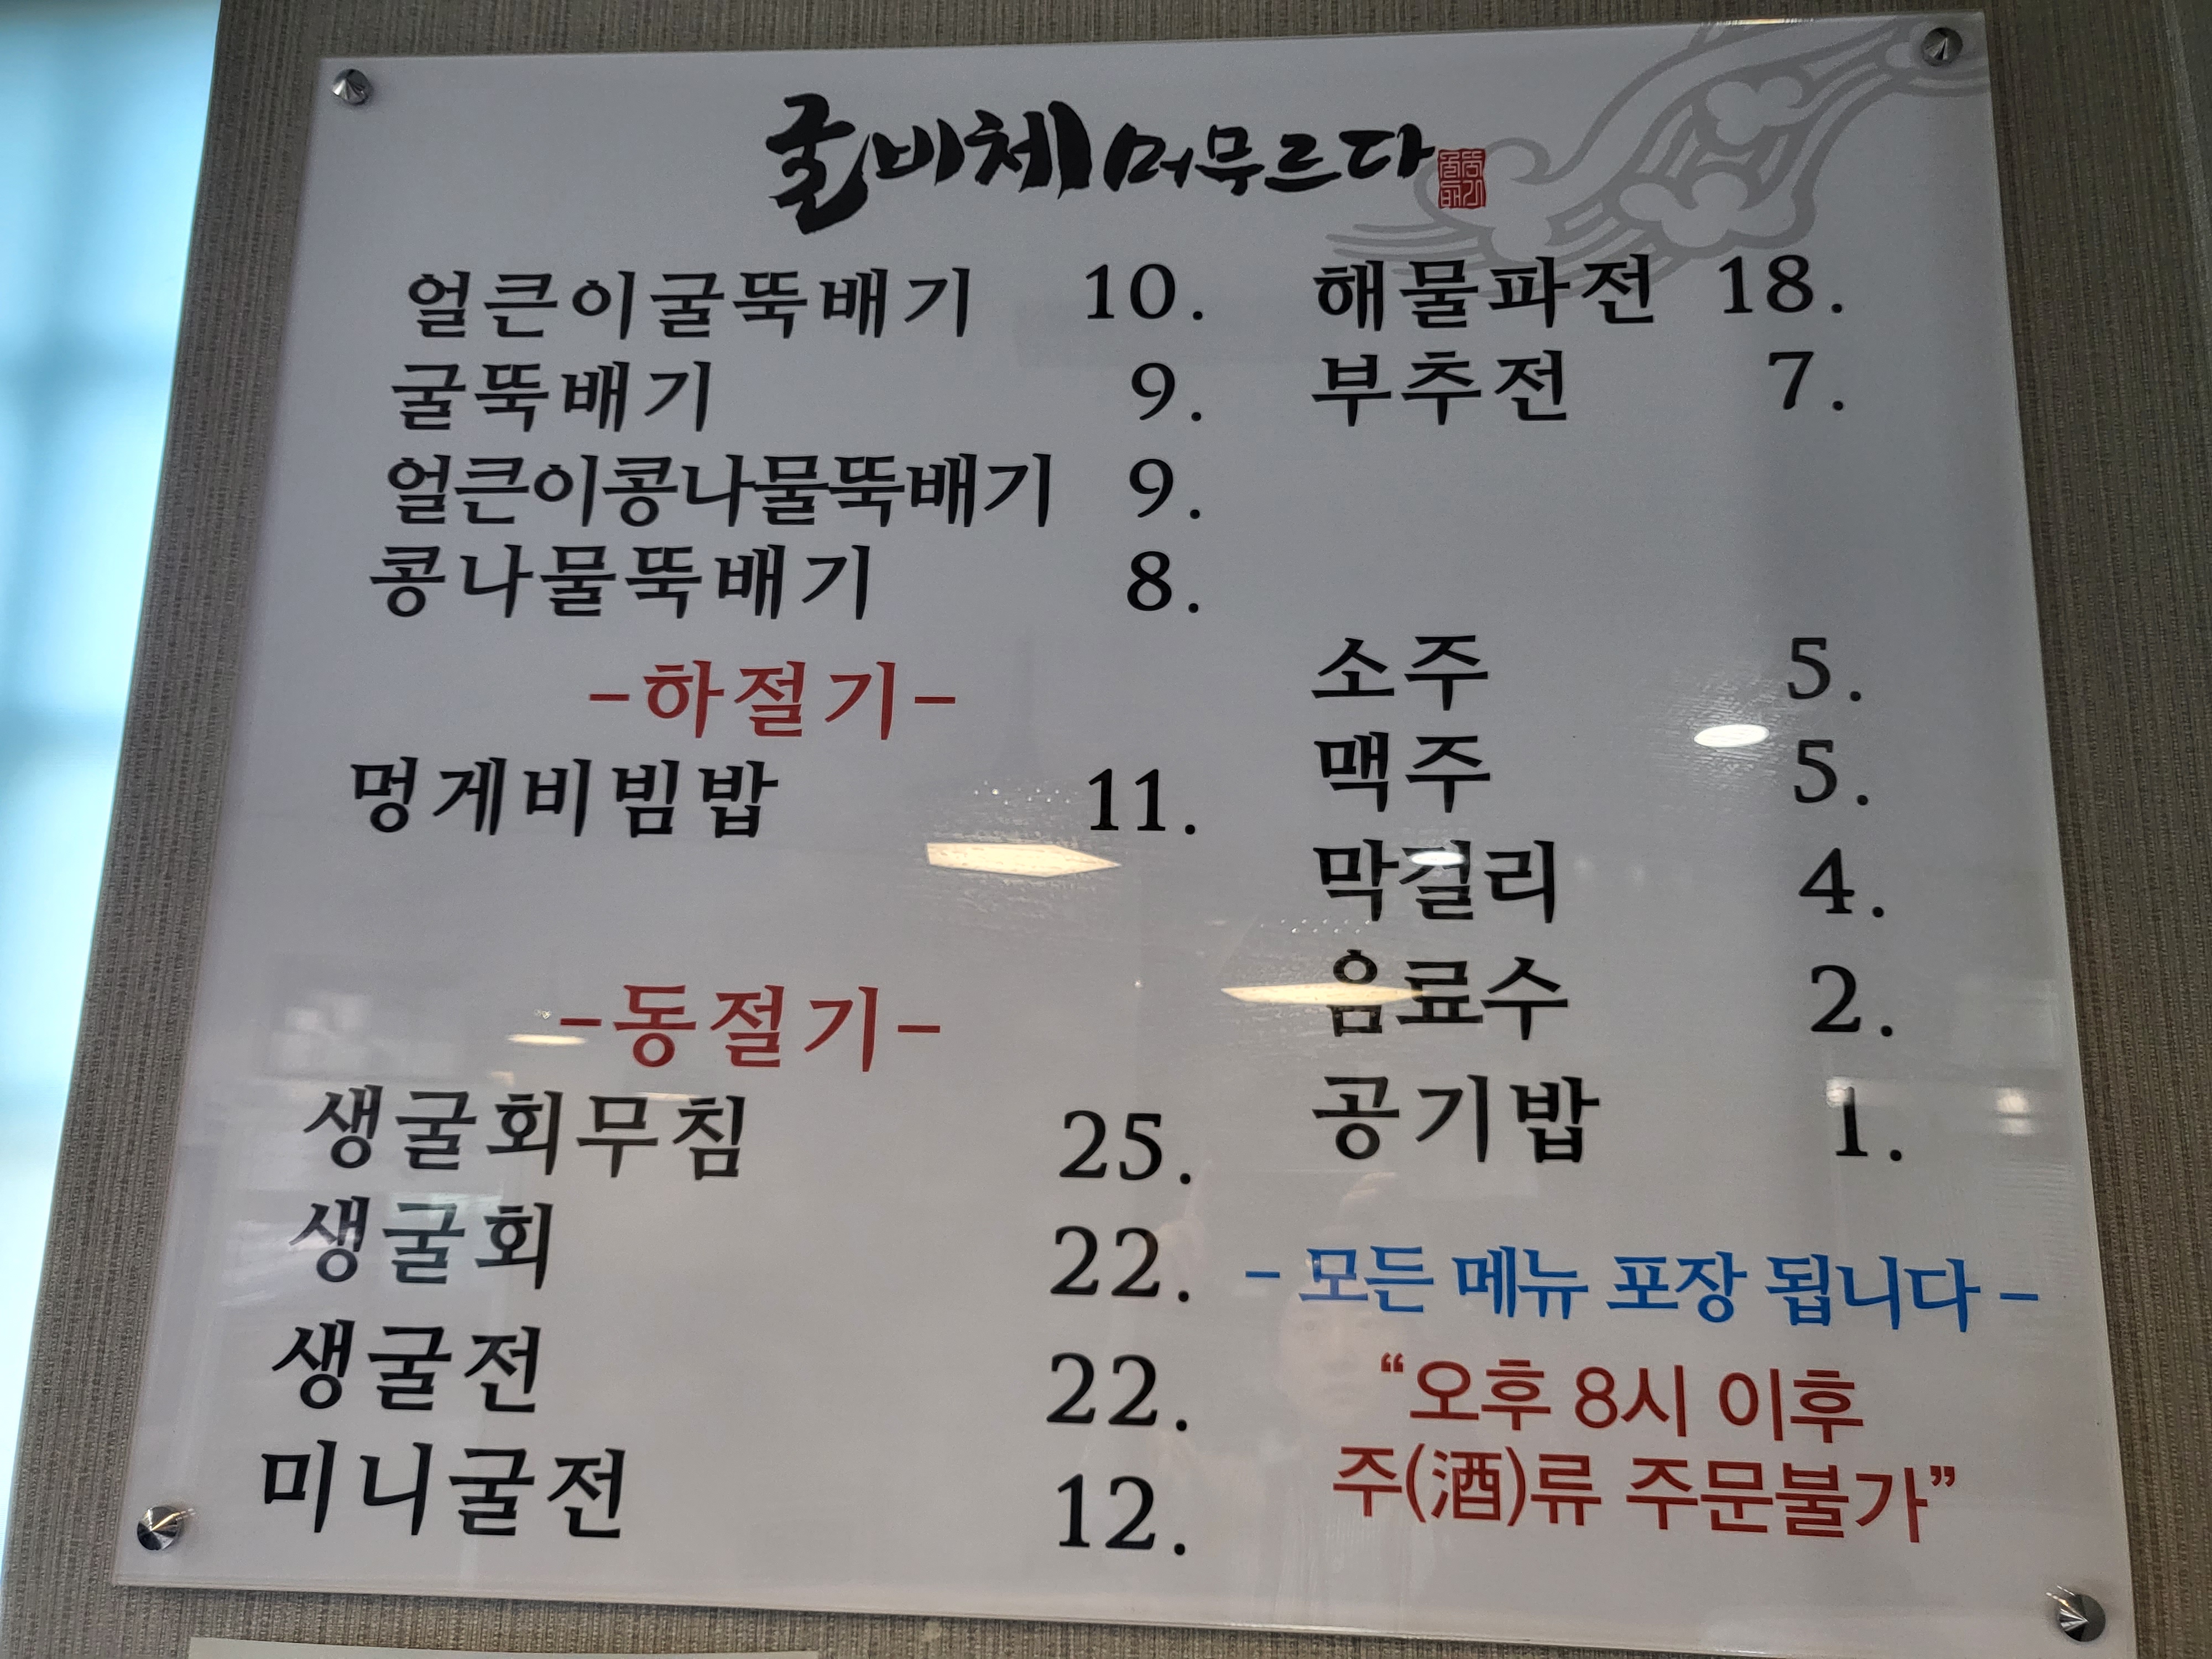 굴비체 머무르다
얼큰이굴뚝배기 10.
굴뚝배기 9.
얼큰이콩나물뚝배기 9.
콩나물뚝배기 8.
-하절기-
멍게비빔밥 11.
-동절기-
생굴회무침 25.
생굴회 22.
생굴전 22.
미니굴전 12.
해물파전 18.
부추전 7.
소주 5.
맥주 5.
막걸리 4.
음료수 2.
공기밥 1.
- 모든 메뉴 포장 됩니다 -
“오후 8시 이후
주(酒)류 주문불가”